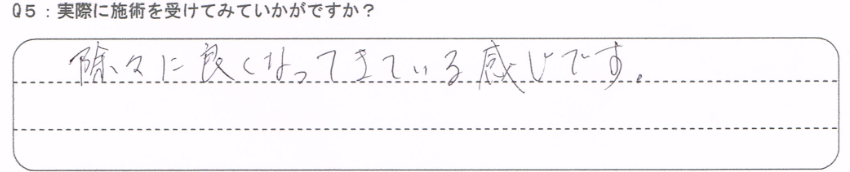 Q5：実際に施術を受けてみていかがですか？
除々に良くなってきている感じです。